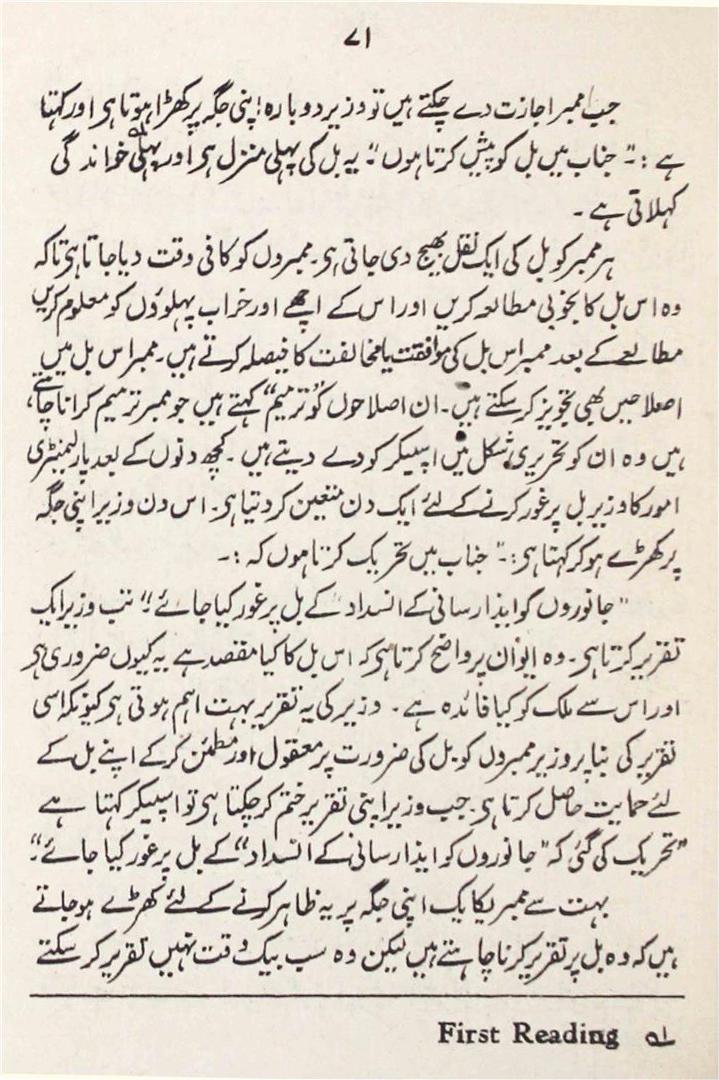 ۷۱
جب ممبر اجازت دے چکتے ہیں تو وزیر دوبارہ اپنی جگہ پر کھڑا ہوتا ہی اور کہتا
ہے :۔ " جناب میں بل کو پیش کرتا ہوں "۔ یہ بل کی پہلی منزل ہی اور پہلی خواندگی
کہلاتی ہے ۔
ہر ممبر کو بل کی ایک نقل بھیج دی جاتی ہی۔ ممبروں کو کافی وقت دیا جاتا ہی تاکہ
وہ اس بل کا بخوبی مطالعہ کریں اور اس کے اچھے اور خراب پہلوؤں کو معلوم کریں
مطالعے کے بعد ممبر اس بل کی موافقت یا مخالفت کا فیصلہ کرتے ہیں۔ ممبر اس بل میں
اصلاحیں بھی تجویز کر سکتے ہیں۔ ان اصلاحوں کو "ترمیم" کہتے ہیں جو ممبر ترمیم کرانا چاہتے
ہیں وہ ان کو تحریری شکل میں اسپیکر کو دے دیتے ہیں ۔ کچھ دنوں کے بعد پارلیمنٹری
امور کا وزیر بل پر غور کرنے کے لئے ایک دن متعین کر دیتا ہی۔ اس دن وزیر اپنی جگہ
پر کھڑے ہو کر کہتا ہی :۔ " جناب میں تحریک کرتا ہوں کہ :۔
" جانوروں کو ایذا رسانی کے انسداد کے بل پر غور کیا جائے "۔ تب وزیر ایک
تقریر کرتا ہی۔ وہ ایوان پر واضح کرتا ہی کہ اس بل کا کیا مقصد ہے یہ کیوں ضروری ہی
اور اس سے ملک کو کیا فائدہ ہے ۔ وزیر کی یہ تقریر بہت اہم ہوتی ہی کیونکہ اسی
تقریر کی بنا پر وزیر ممبروں کو بل کی ضرورت پر معقول اور مطمئن کر کے اپنے بل کے
لئے حمایت حاصل کرتا ہی۔ جب وزیر اپنی تقریر ختم کر چکتا ہی تو اسپیکر کہتا ہے
"تحریک کی گئی کہ " جانوروں کو ایذا رسانی کے انسداد" کے بل پر غور کیا جائے "۔
بہت سے ممبر یکایک اپنی جگہ پر یہ ظاہر کرنے کے لئے کھڑے ہو جاتے
ہیں کہ وہ بل پر تقریر کرنا چاہتے ہیں لیکن وہ سب بیک وقت نہیں تقریر کر سکتے
First Reading